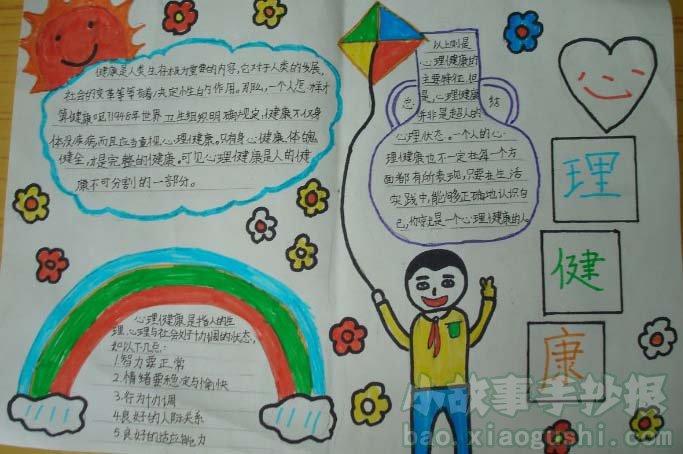 健康是人类生存极为重要的内容,它对于人类的发展,
社会的变革等等都有决定性的作用。那么,一个人怎样才
算健康呢?1948年世界卫生组织明确规定,健康不仅身
体没疾病,而且应当重视心理健康。只有身心健康、体魄
健全,才是完整的健康。可见心理健康是人的健
康不可分割的一部分。
心理健康是指人的生
理、心理与社会处于协调的状态,
如以下几点:
1.智力要正常
2.情绪要稳定与愉快
3.行为协调
4.良好的人际关系
5.良好的适应能力
以上则是
心理健康的
主要特征,但
是,心理健康
并非是超人的
心理状态。一个人的心
理健康也不一定在每一个方
面都有所表现,只要在生活
实践中,能够正确地认识自
己,你就是一个心理健康的人
总 结
理
健
康
小故事手抄报
bao.xiaogushi.com